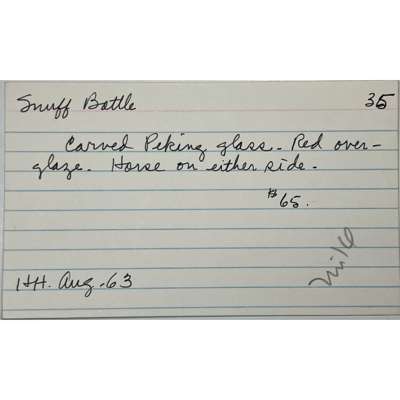 Snuff Bottle 35
Carved Peking glass. Red over-
glaze. Horse on either side.
$65.
HH. Aug.-63